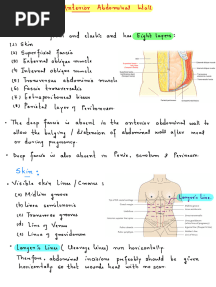 Anterior Abdominal Wall
PDF
and elastic and has Eight layers:
(1) Skin
(2) Superficial fascia
(3) External oblique muscle
(4) Internal oblique muscle
(5) Transversus abdominis muscle
(6) Fascia transversalis
(7) Extraperitoneal tissue
(8) Parietal layer of Peritoneum
• The deep fascia is absent in the anterior abdominal wall to
allow the bulging / distension of abdominal wall after meal
or during pregnancy.
• Deep fascia is also absent in Penis, scrotum & Perineum.
Skin:
• Visible skin Lines / Creases:
(a) Midline groove
(b) Linea semilunaris
(c) Transverse grooves
(d) Line of Venus
(e) Linea gravidarum
Langer's Lines
• Langer's Lines (Cleavage lines) run horizontally.
Therefore, abdominal incisions preferably should be given
horizontally so that wounds heal with no scar.